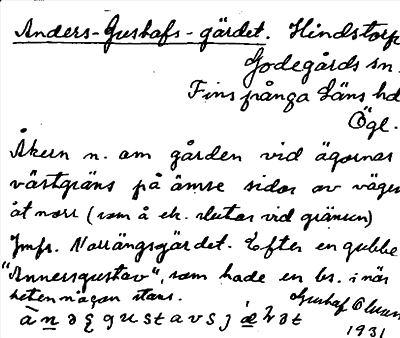 Anders-Gustafs-gärdet. Hindstorp
Godegårds sn.
Finspånga Läns hd
Ögl.
Åkern n. om gården vid ägornas
västgräns på ömse sidor av vägen
åt norr (som å ek. slutar vid gränsen)
Jmfr. Norrängsgärdet. Efter en gubbe
"Annersgustav", som hade en bs. i när
heten någon stans.
Gustaf
1931